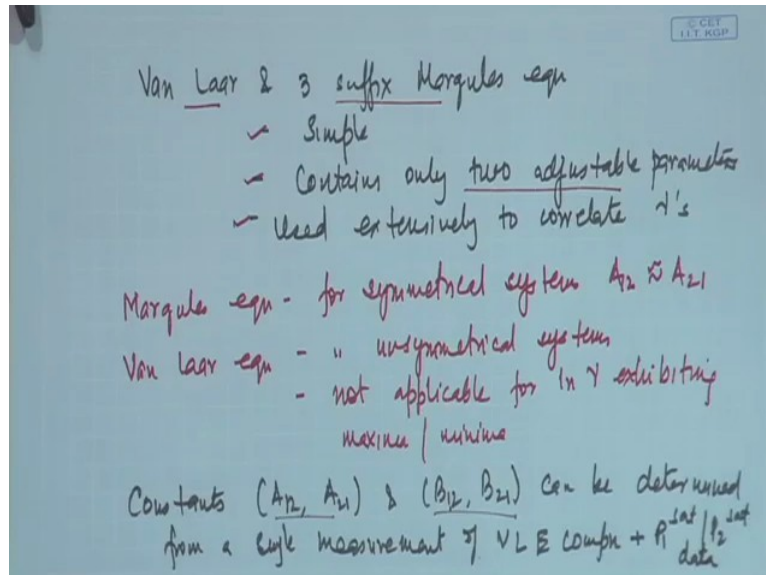 © CET
I.I.T. KGP
Van Laar & 3 suffix Margules eqn
✓ Simple
- Contains only two adjustable parameters
✓ Used extensively to correlate γ's
Margules eqn - for symmetrical systems A12 ≈ A21
Van Laar eqn - " unsymmetrical systems
- not applicable for ln γ exhibiting
maxima / minima
Constants (A12, A21) & (B12, B21) can be determined
from a single measurement of VLE compn + P1^sat / P2^sat
data